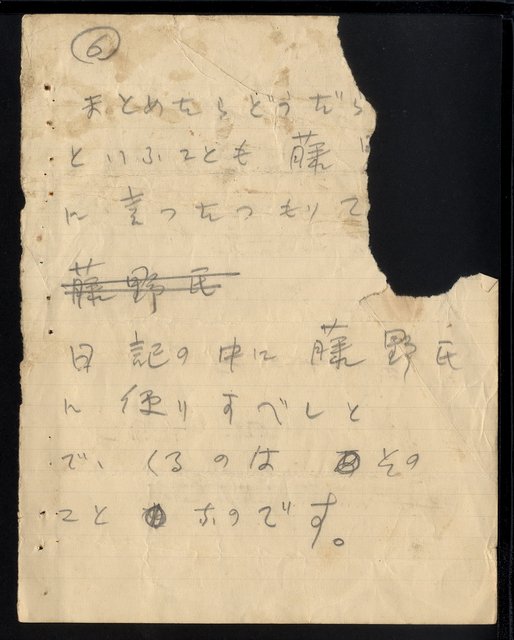 6
まとめたらどうだら
といふことも 藤
に 言つたつもりで
藤野氏
日記の中に 藤野氏
に 便りすべしと
でてくるのは その
こと なのです。